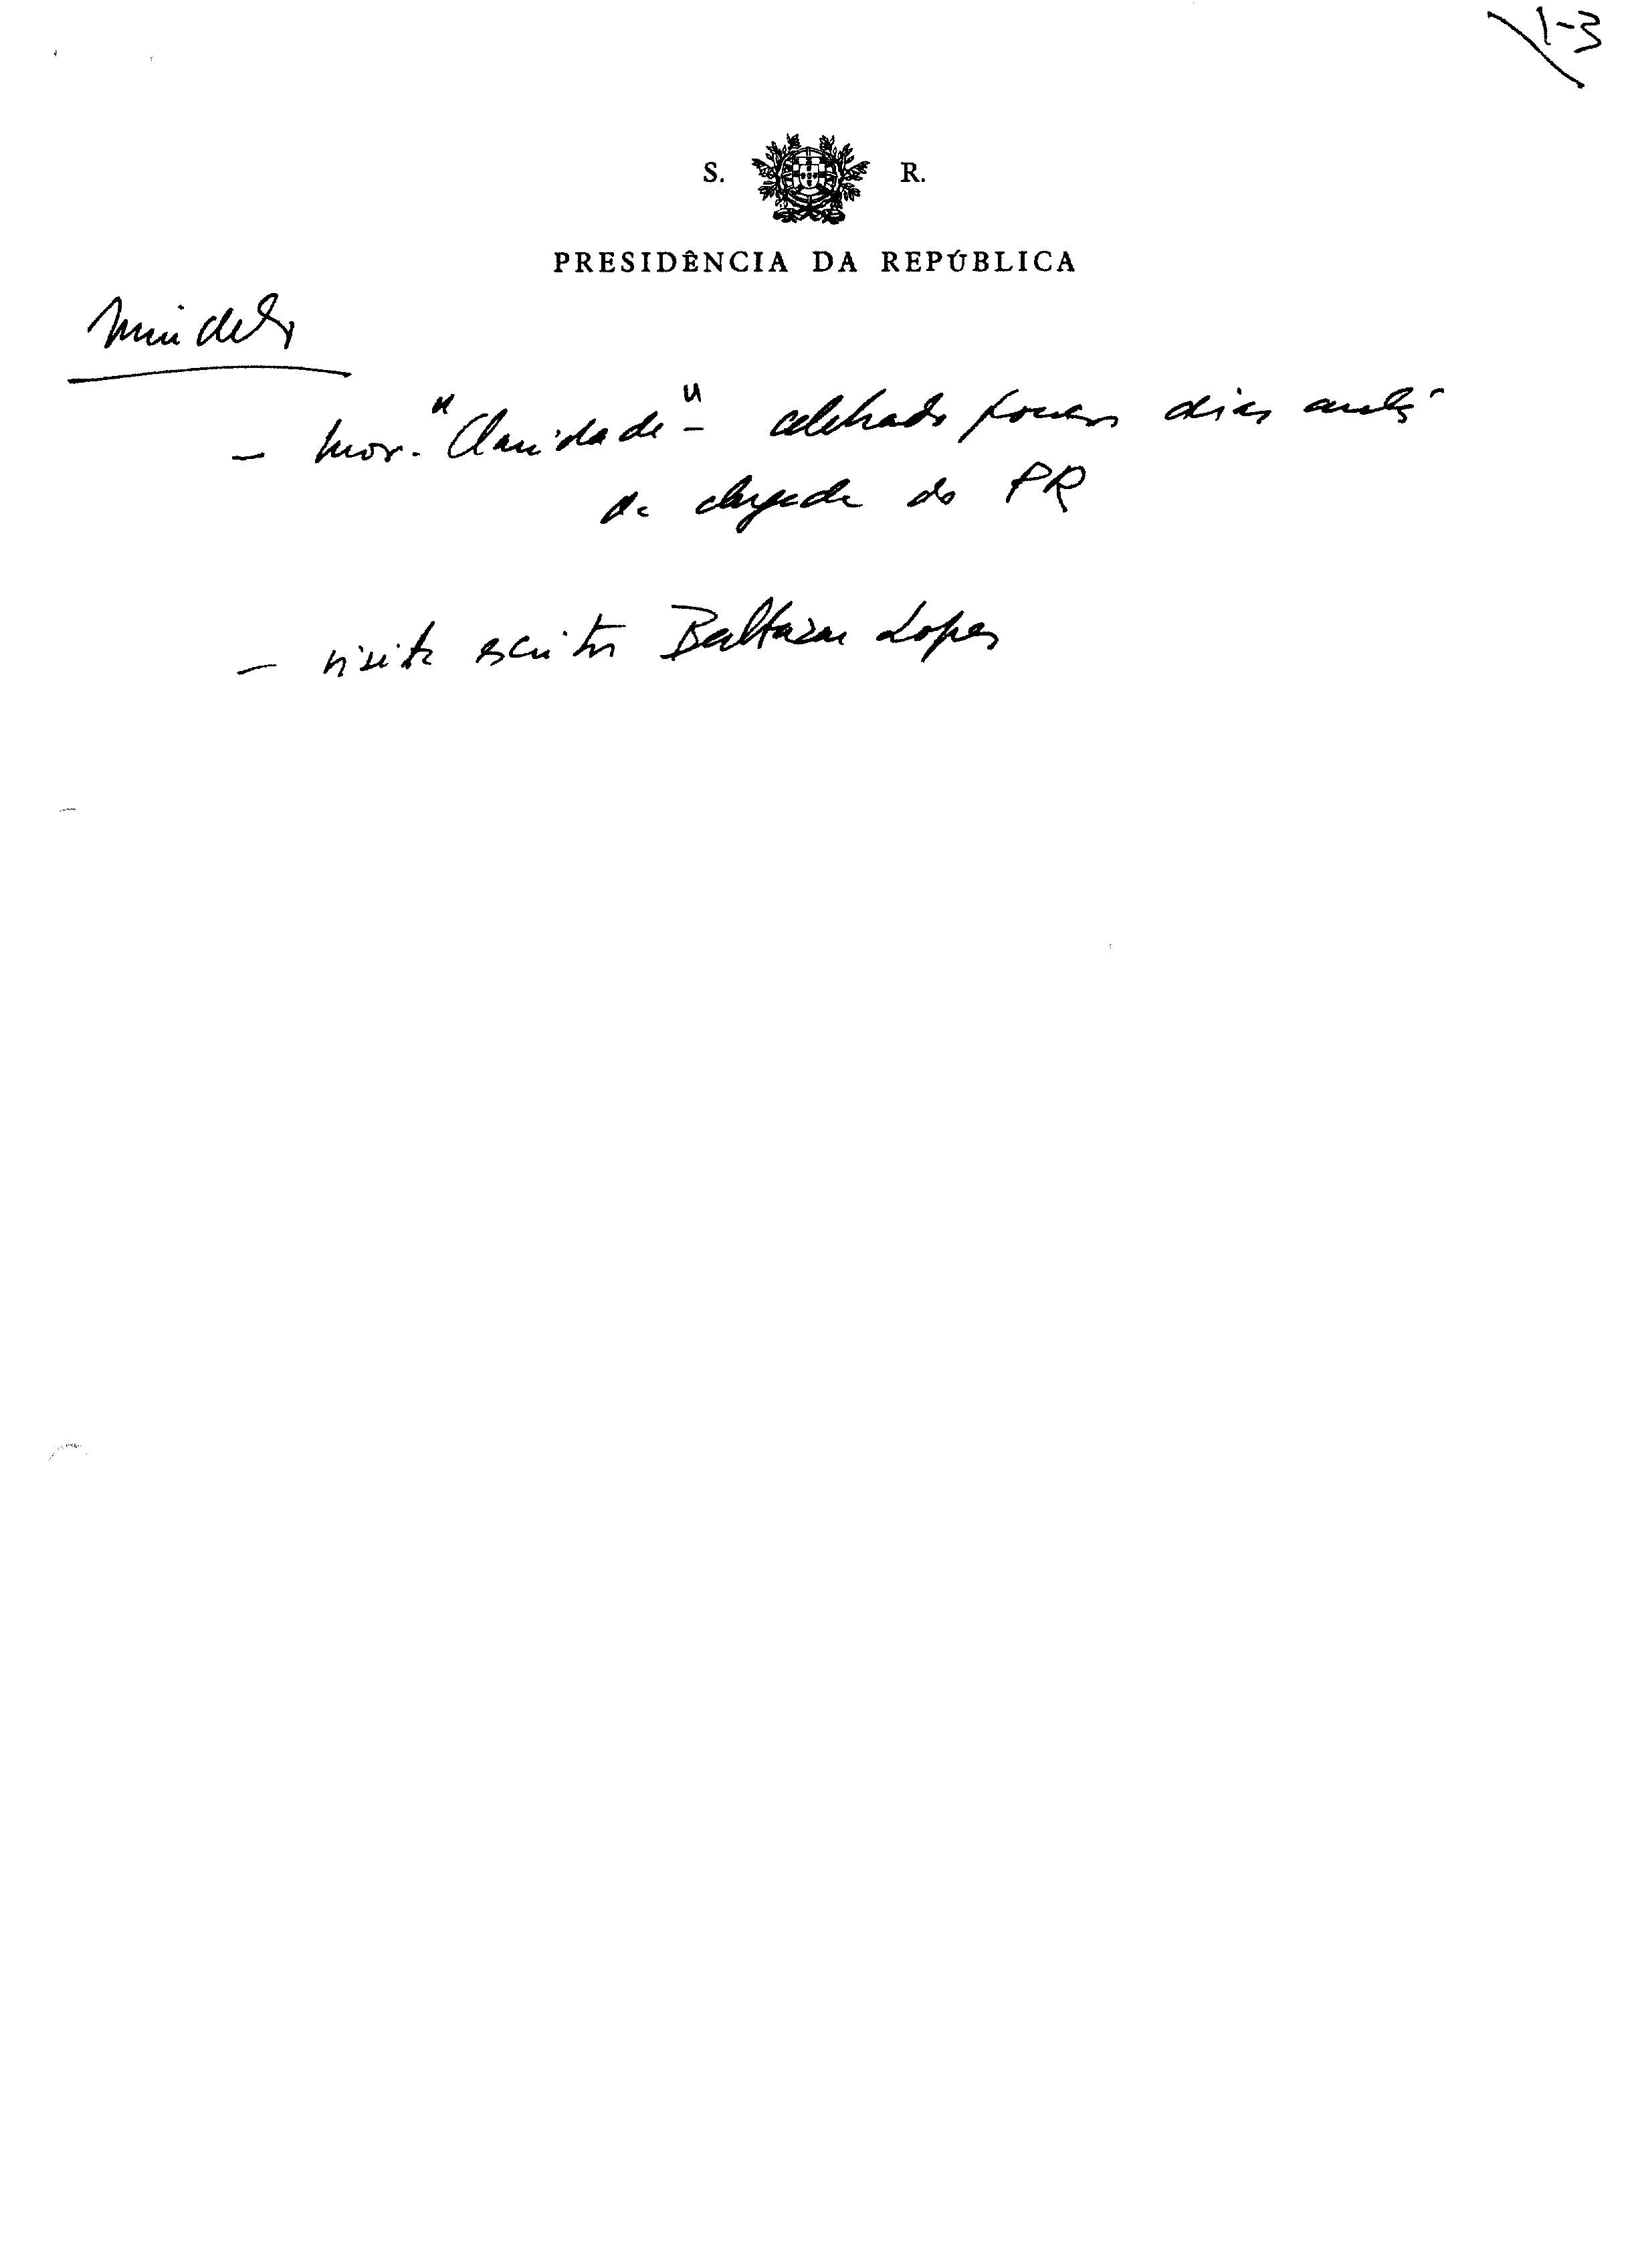 1-3
S. R.
PRESIDÊNCIA DA REPÚBLICA
Mindelo
- Mov. "Claridade" - celebrado poucos dias antes
da chegada do PR
- visita escritor Baltazar Lopes